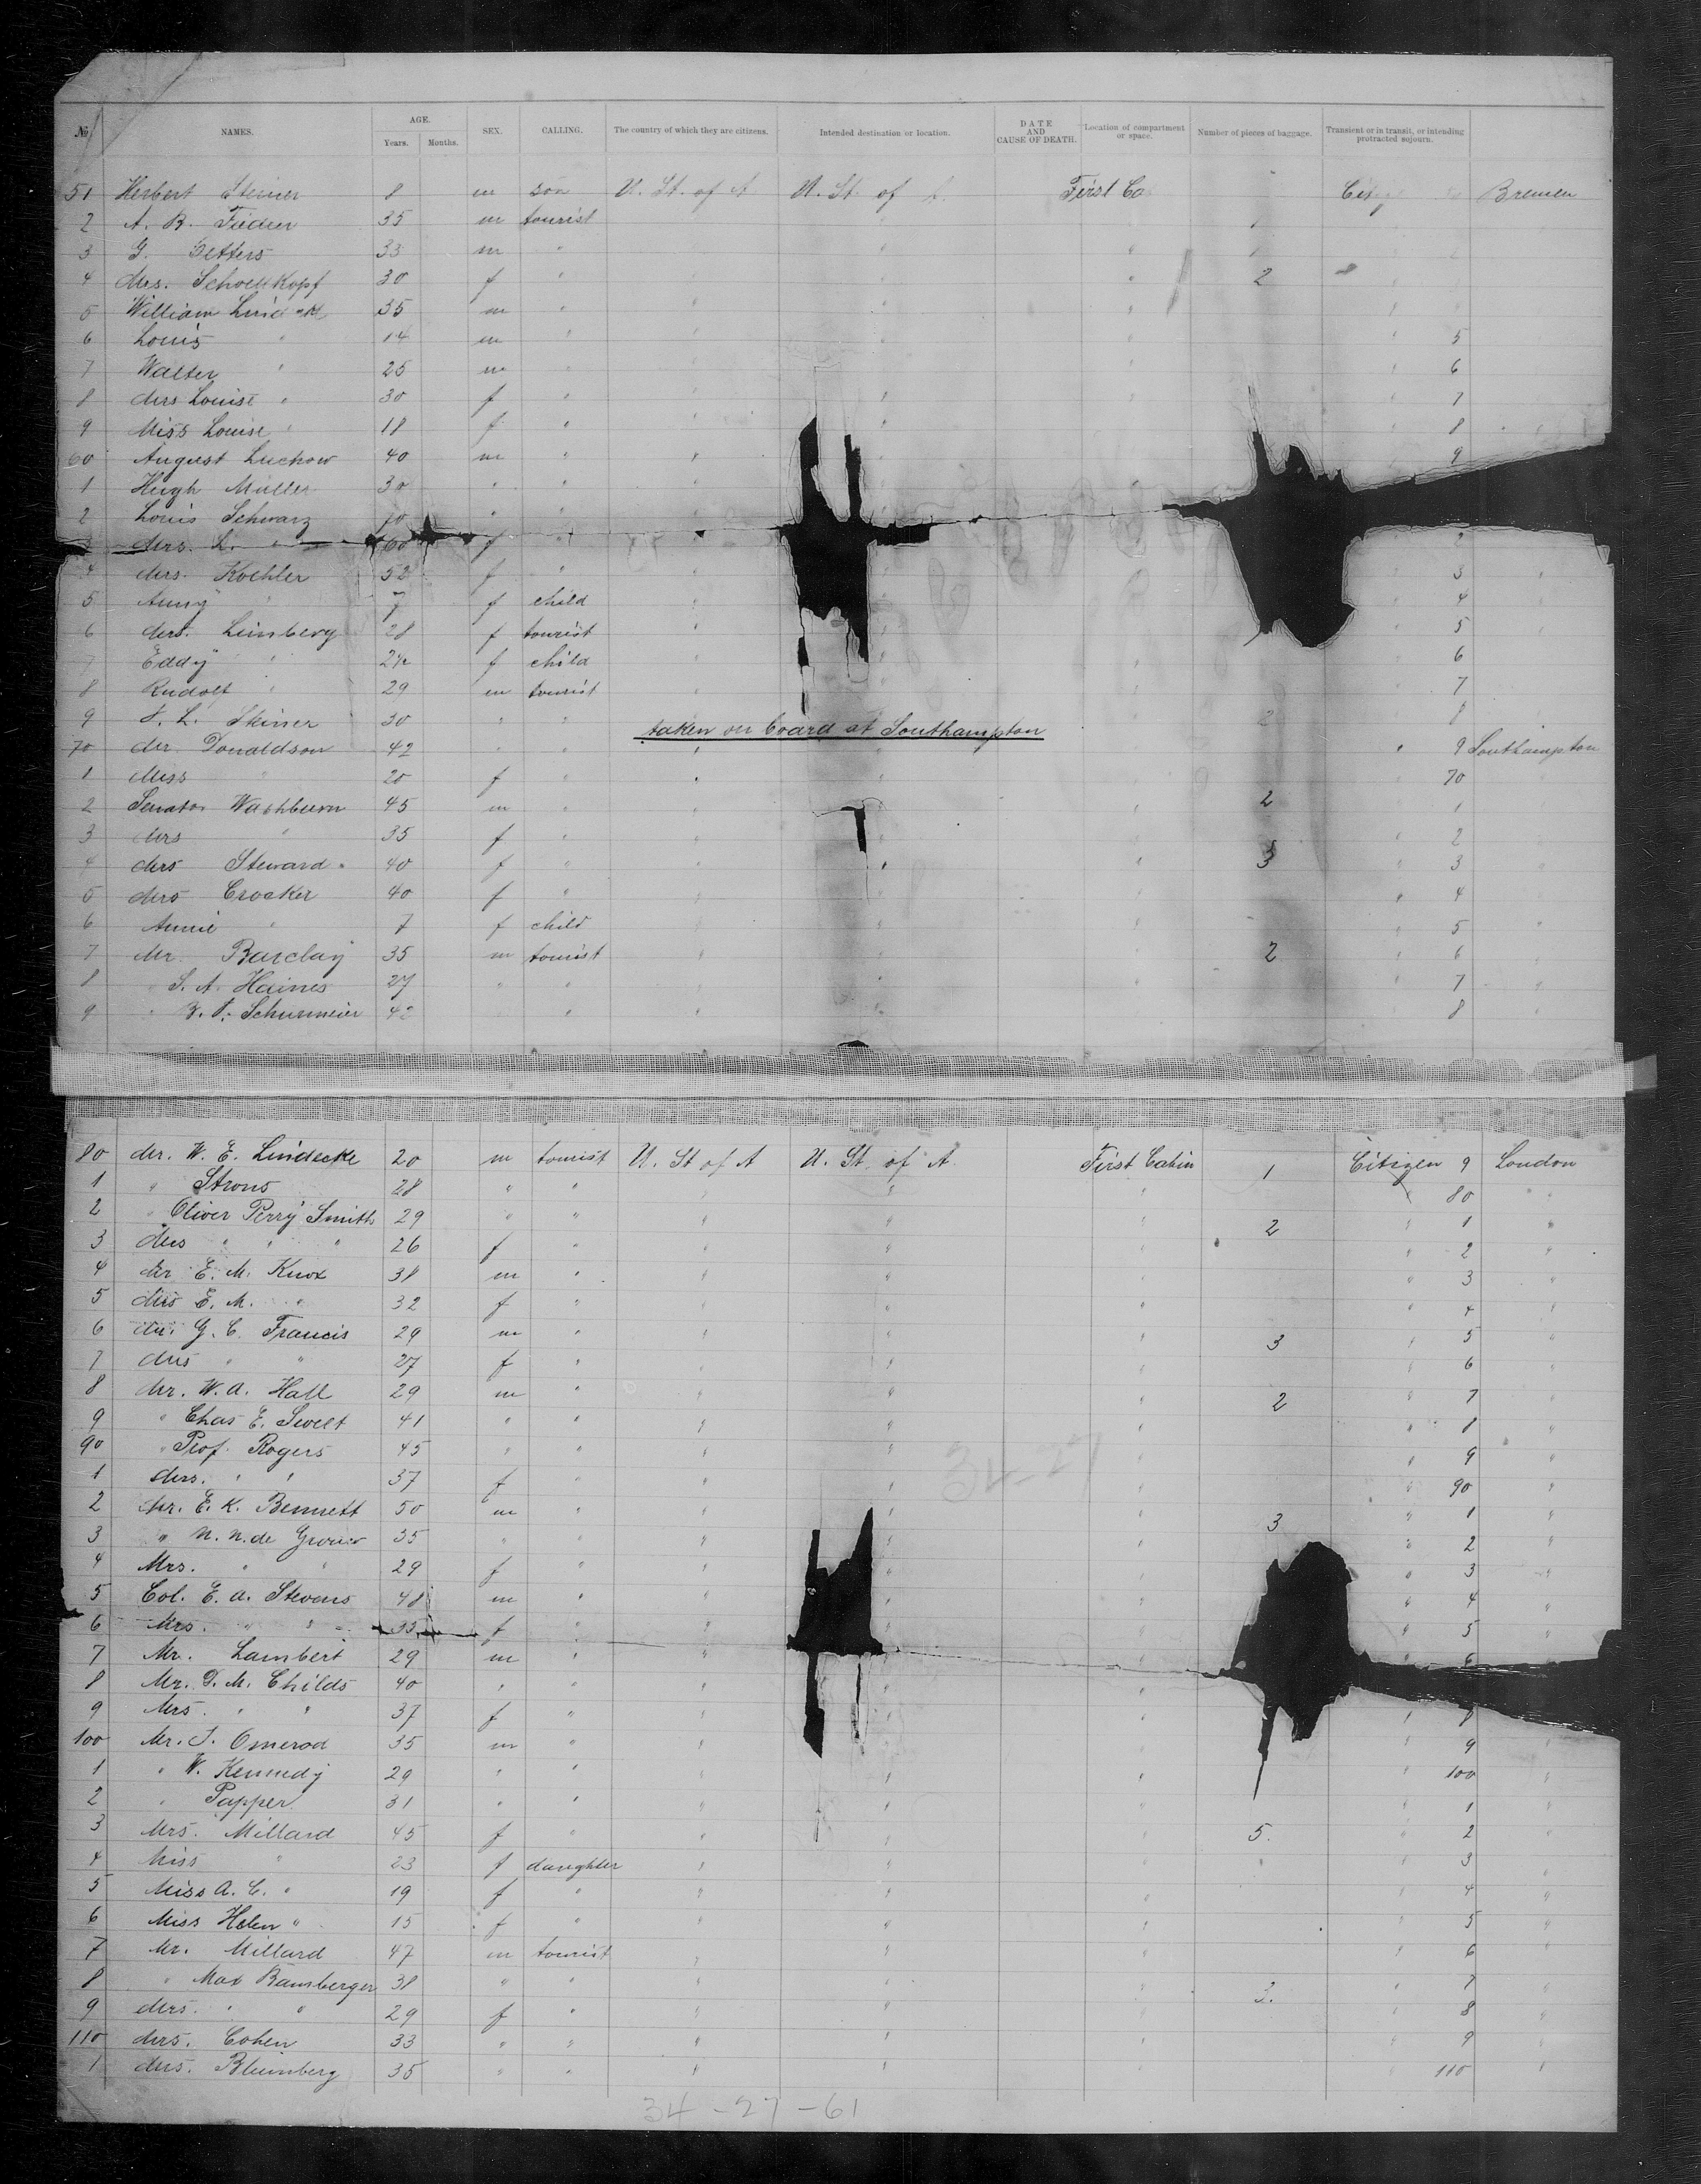 No. NAMES. AGE. Years. Months. SEX. CALLING. The country of which they are citizens. Intended destination or location. DATE AND CAUSE OF DEATH. Location of compartment or space. Number of pieces of baggage. Transient or in transit, or intending protracted sojourn.
51 Herbert Steiner 8 m son U. St. of A U. St. of A. First Ca Bremen
2 A. R. 35 m tourist
3 G. 33 m "
4 Mrs. Schoellkopf 30 f " 2
5 William 35 m "
6 Louis " 14 m " 5
7 Walter " 25 m " 6
8 Mrs Louise " 30 f " 7
9 Miss Louise " 18 f " 8
60 August Luchow 40 m " 9
1 Hugh Müller 30 " "
2 Louis Schwarz 70 " "
3 Mrs. L. " 60 f " 2
4 Mrs. Koehler 52 f " 3
5 Anny " 7 f child 4
6 Mrs. Leimberg 28 f tourist 5
7 Eddy " f child 6
8 Rudolf " 29 m tourist 7
9 F. L. Skinner 30 " " 2 8
taken on board at Southampton
70 Mr Donaldson 42 " " 9 Southampton
1 Miss " 20 f " 70
2 Senator Washburn 45 m " 2 1
3 Mrs " 35 f " 2
4 Mrs Steward 40 f " 3 3
5 Mrs Crocker 40 f " 4
6 Annie " 7 f child 5
7 Mr. Barclay 35 m tourist 2 6
8 " S. A. Haines 27 " " 7
9 " Schurmeier 42 " 8
80 Mr. W. E. Lindecke 20 m tourist U. St of A U. St. of A. First Cabin 1 Citizen 9 London
1 " Strons 28 " " 80
2 " Oliver Perry Smith 29 " " 2 1
3 Mrs " " " 26 f " 2
4 Mr E. M. Knox 38 m " 3
5 Mrs E. M. " 32 f " 4
6 Mr. G. C. Francis 29 m " 3 5
7 Mrs " " 27 f " 6
8 Mr. W. A. Hall 29 m " 2 7
9 " Chas E. Sweet 41 " " 8
90 " Prof. Rogers 45 " " 9
1 Mrs. " " 37 f " 90
2 Mr. E. K. Bennett 50 m " 3 1
3 " N. N. de 35 " " 2
4 Mrs. " " 29 f " 3
5 Col. E. A. Stevens 48 m " 4
6 Mrs. " " 33 f " 5
7 Mr. Lambert 29 m " 6
8 Mr. D. M. Childs 40 " "
9 Mrs. " " 37 f " 8
100 Mr. J. Omerod 35 m " 9
1 " W. Kennedy 29 " " 100
2 " Papper 31 " " 1
3 Mrs. Millard 45 f " 5. 2
4 Miss " 23 f daughter 3
5 Miss A. C. " 19 f " 4
6 Miss Helen " 15 f " 5
7 Mr. Millard 47 m tourist 6
8 " Max Bamberger 38 " " 3. 7
9 Mrs. " " 29 f " 8
110 Mrs. Cohen 33 " " 9
1 Mrs. Blumberg 35 " " 110
34-27-61